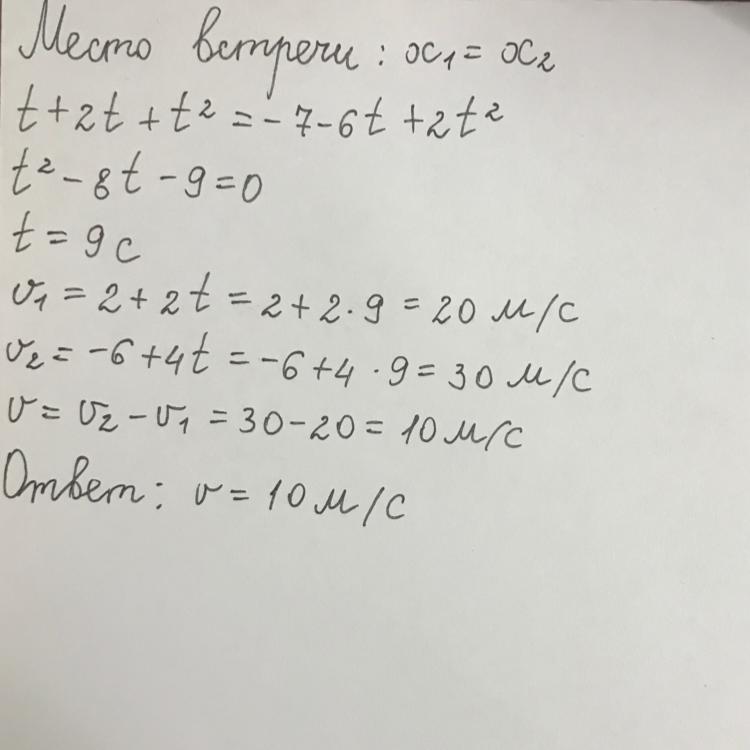 Место встречи: x₁ = x₂
t + 2t + t² = -7 - 6t + 2t²
t² - 8t - 9 = 0
t = 9 c
v₁ = 2 + 2t = 2 + 2 · 9 = 20 м/с
v₂ = -6 + 4t = -6 + 4 · 9 = 30 м/с
v = v₂ - v₁ = 30 - 20 = 10 м/с
Ответ: v = 10 м/с